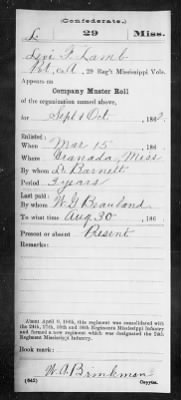 (Confederate.)
L 29 Miss.
Levi F. Lamb
Pvt, Co. , 29 Reg't Mississippi Vols.
Appears on
Company Muster Roll
of the organization named above,
for Sept & Oct, 186 .
Enlisted:
When Mar 15, 186
Where Granada, Miss
By whom Lt. Barnett
Period 3 years
Last paid:
By whom W G Brauland
To what time Aug 30, 186
Present or absent Present
Remarks:
About April 9, 1865, this regiment was consolidated with
the 24th, 27th, 30th and 34th Regiments Mississippi Infantry
and formed a new regiment which was designated the 24th
Regiment Mississippi Infantry.
Book mark:
W. A. Brinkman
(642) Copyist.